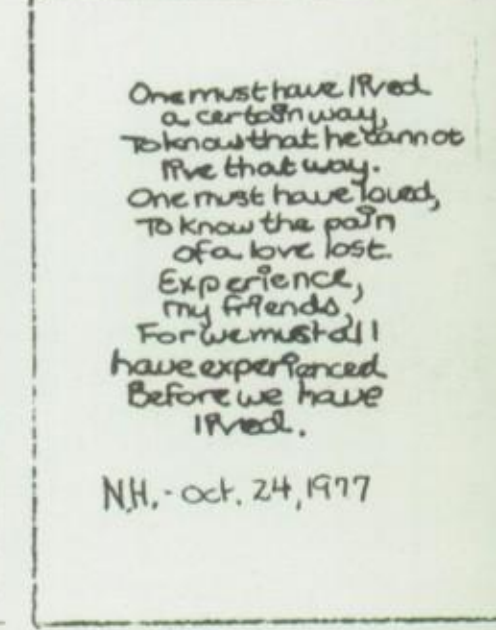 One must have lived
a certain way,
To know that he cannot
live that way.
One must have loved,
To know the pain
of a love lost.
Experience,
my friends,
For we must all
have experienced
Before we have
lived.
N.H. - oct. 24, 1977